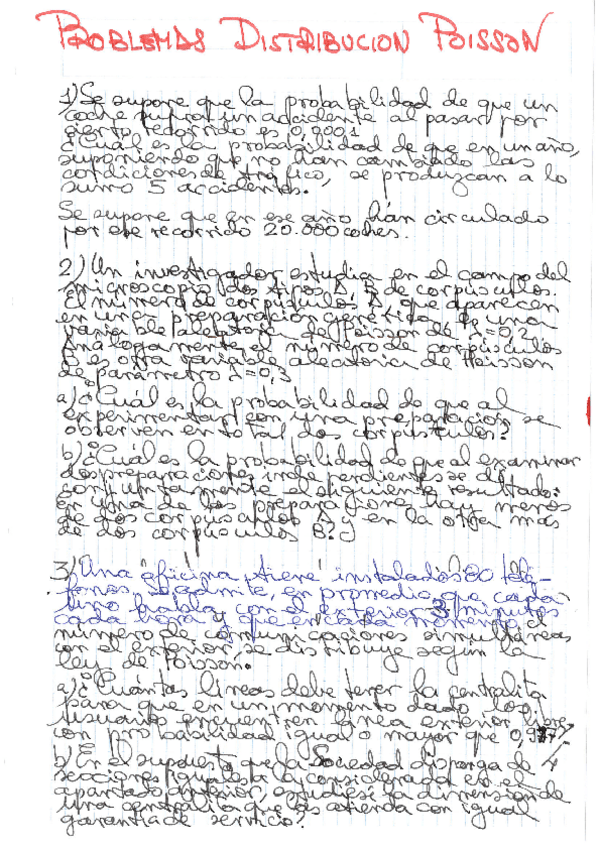 PROBLEMAS DISTRIBUCION POISSON
1) Se supone que la probabilidad de que un
coche sufra un accidente al pasar por
cierto recorrido es 0,0001
¿Cuál es la probabilidad de que en un año,
suponiendo que no han cambiado las
condiciones de tráfico, se produzcan a lo
sumo 5 accidentes.
Se supone que en ese año han circulado
por ese recorrido 20.000 coches.
2) Un investigador estudia en el campo del
microscopio dos tipos A, B de corpúsculos.
El número de corpúsculos A, que aparecen
en una preparación genética es una
variable aleatoria de Poisson de λ=0,2
Análogamente el número de corpúsculos
B es otra variable aleatoria de Poisson
de parámetro λ=0,3
a) ¿Cuál es la probabilidad de que al
experimentar con una preparación se
observen en total dos corpúsculos?
b) ¿Cuál es la probabilidad de que al examinar
dos preparaciones independientes se dé
conjuntamente el siguiente resultado:
en una de las preparaciones hay menos
de dos corpúsculos A y en la otra más
de dos corpúsculos B?
3) Una oficina tiene instalados 80 telé-
fonos. Se admite, en promedio, que cada
uno habla con el exterior 3 minutos
cada hora y que en cada momento el
número de comunicaciones simultáneas
con el exterior se distribuye según la
ley de Poisson.
a) ¿Cuántas líneas debe tener la centralita
para que en un momento dado los
usuarios encuentren línea exterior libre
con probabilidad igual o mayor que
b) En el supuesto que la Sociedad disponga de 4
secciones iguales a la considerada en el
apartado anterior, estudiese la dimensión de
una centralita que las atienda con igual
garantía de servicio?